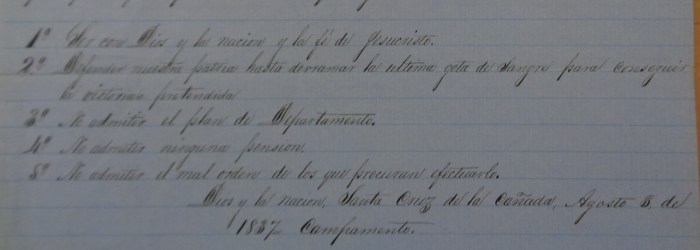 1º Ser con Dios y la nacion y la fé de Jesucristo.
2º Difender nuestra patria hasta derramar la ultema gota de sangre para conseguir
la victoria pretendida
3º No admiter el plan de Departamento.
4º No admiter ninguna pension.
5º No admiter el mal orden de los que procuran efectuarlo.
Dios y la nacion, Santa Cruz de la Cañada, Agosto 3. de
1837 Campamento.